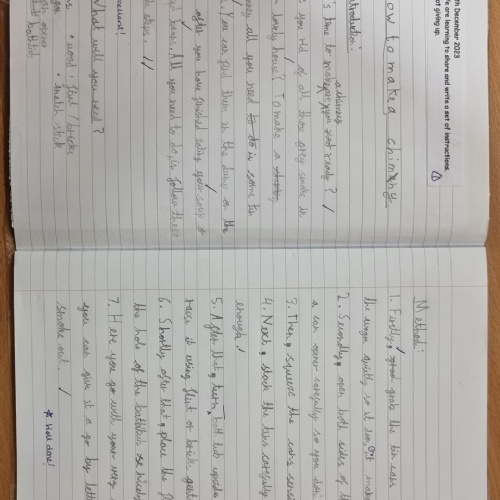 th December 2023
e are learning to share and write a set of instructions.
t giving up.
ow to make a chimny
ntroduction:
a chimney
s time to make you ready? /
you rid of all those grey smoke in
lovely house? To make a
all you need to do is some tin
. You can find them in the dump or the
after you have finished eating your soup or
beans. All you need to do, is follow these
steps. //
excellent!
What will you need?
wood • flint / bricks
• match stick
can opener
bathtub
Method:
1. Firstly, grab the tin cans
the wagon quickly so it does not make
2. Secondly, open both sides of th
a can opener carefully so you don't
3. Then, squeeze the cans
4. Next, stack the tins carefully
enough. /
5. After that, turn bath tub upside
raise it using flint or brick
6. Shortly after that, place the
the hole of the bathtub
7. Here you go with your very
you can give it a go by letti
smoke out. /
* Well done!